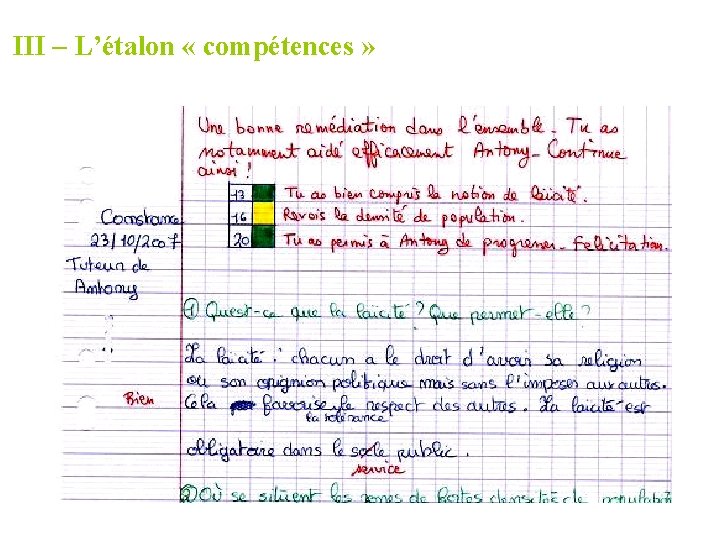 III – L’étalon « compétences »
Une bonne remédiation dans l'ensemble. Tu as
notamment aidé efficacement Antony. Continue
ainsi !
13 Tu as bien compris la notion de laïcité.
16 Revois la densité de population.
20 Tu as permis à Antony de progresser. Félicitation.
Constance
23/10/2007
Tuteur de
Anthony
① Qu'est-ce que la laïcité ? Que permet-elle ?
La laïcité : chacun a le droit d'avoir sa religion
ou son opignion politique mais sans l'imposer aux autres.
Bien
Cela favorise le respect des autres. La laïcité est
la tolérance
obligatoire dans le public.
service
② Où se situent les zones de fortes densités de population